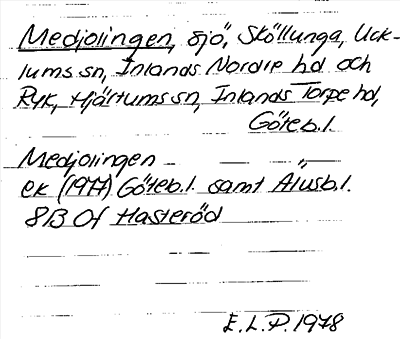 Medjolingen, sjö, Sköllunga, Uck-
lums sn, Inlands Nordre hd och
Ryk, Hjärtums sn, Inlands Torpe hd,
Göteb.l.
Medjolingen
ek (1977) Göteb.l. samt Älvsb.l.
8B Of Hasteröd
E.L.P. 1978